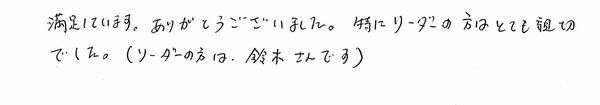 満足しています。ありがとうございました。特にリーダーの方はとても親切
でした。(リーダーの方は、鈴木さんです)